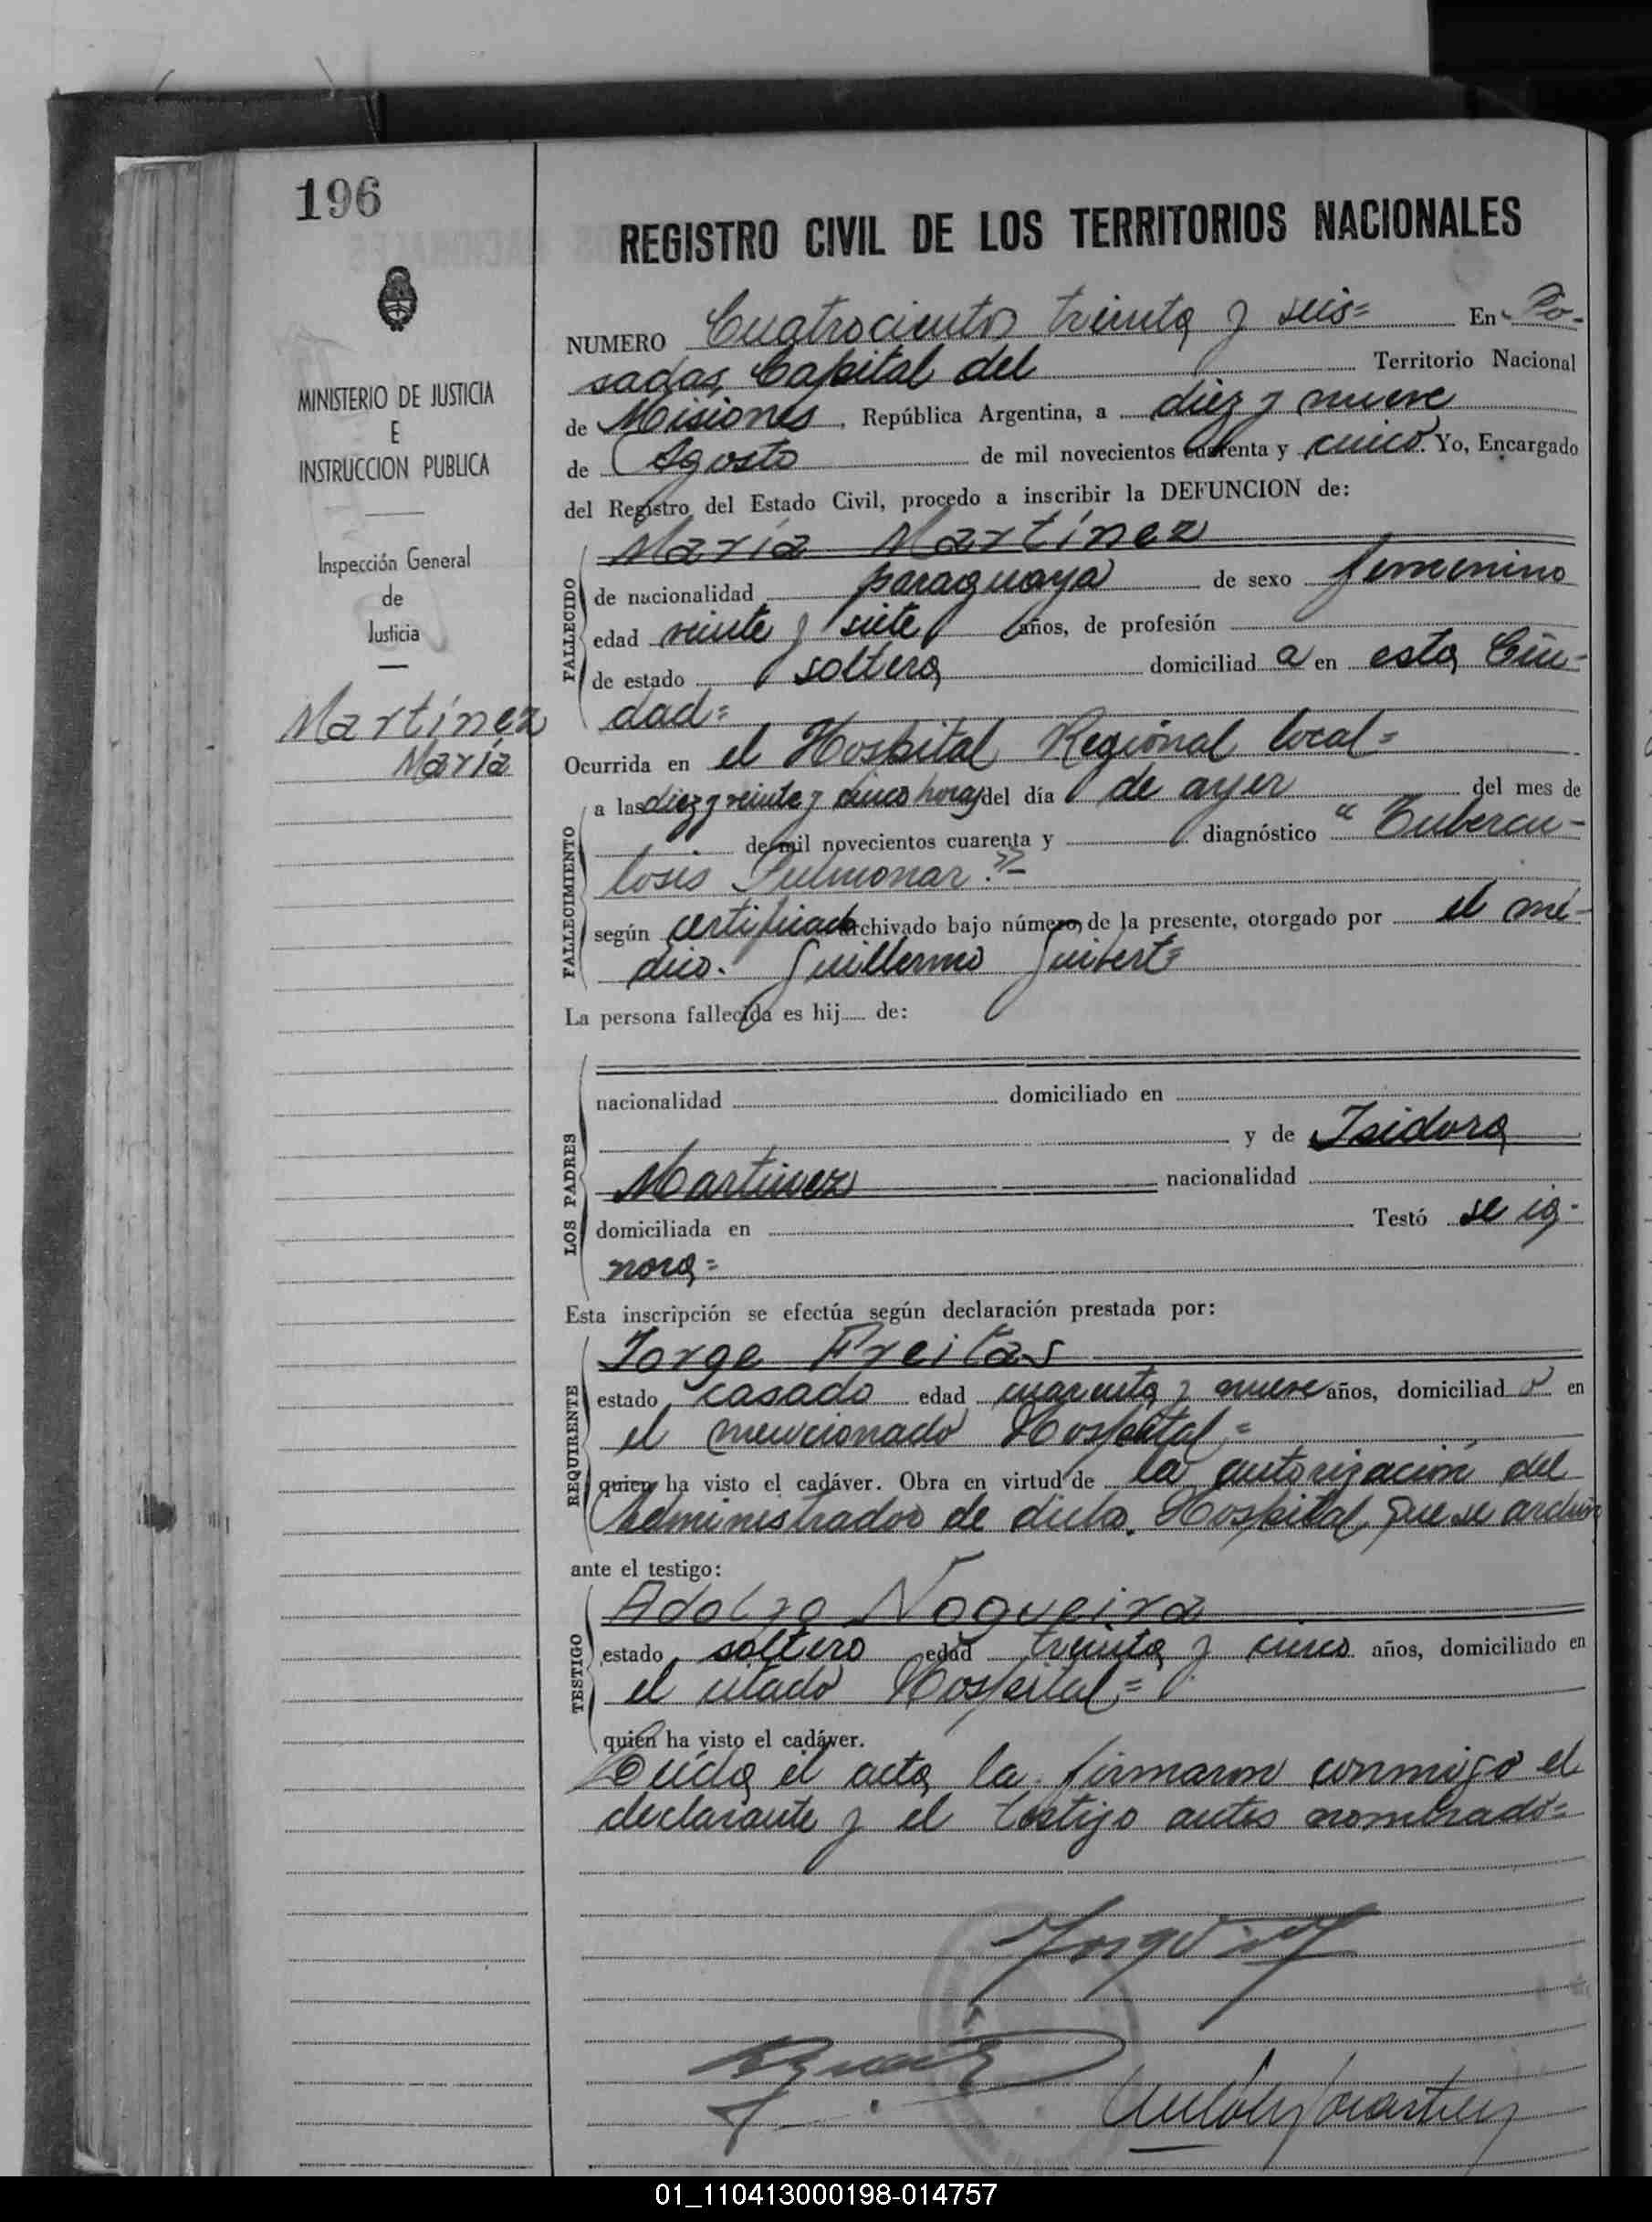 196
REGISTRO CIVIL DE LOS TERRITORIOS NACIONALES
MINISTERIO DE JUSTICIA
E
INSTRUCCION PUBLICA
Inspección General
de
Justicia
Martínez
María
NUMERO Cuatrocientos treinta y seis= En Po-
sadas, Capital del Territorio Nacional
de Misiones, República Argentina, a diez y nueve
de Agosto de mil novecientos cuarenta y cinco. Yo, Encargado
del Registro del Estado Civil, procedo a inscribir la DEFUNCION de:
FALLECIDO
María Martínez
de nacionalidad paraguaya de sexo femenino
edad veinte y siete años, de profesión
de estado soltera domiciliad a en esta Ciu-
dad=
Ocurrida en el Hospital Regional local=
FALLECIMIENTO
a las diez y veinte y cinco horas del día de ayer del mes de
de mil novecientos cuarenta y diagnóstico "Tubercu-
losis Pulmonar."=
según certificado archivado bajo número de la presente, otorgado por el mé-
dico. Guillermo Guibert=
La persona fallecida es hij de:
LOS PADRES
nacionalidad domiciliado en
y de Isidora
Martinez nacionalidad
domiciliada en Testó se ig-
nora=
Esta inscripción se efectúa según declaración prestada por:
REQUIRENTE
Jorge Freitas
estado casado edad cuarenta y nueve años, domiciliad o en
el mencionado Hospital,=
quien ha visto el cadáver. Obra en virtud de la autorización del
Administrador de dicho Hospital, que se archiva
ante el testigo:
TESTIGO
Adolfo Nogueira
estado soltero edad treinta y cinco años, domiciliado en
el citado Hospital,=
quien ha visto el cadáver.
Leída el acta, la firmaron conmigo el
declarante y el testigo antes nombrado=
01_110413000198-014757